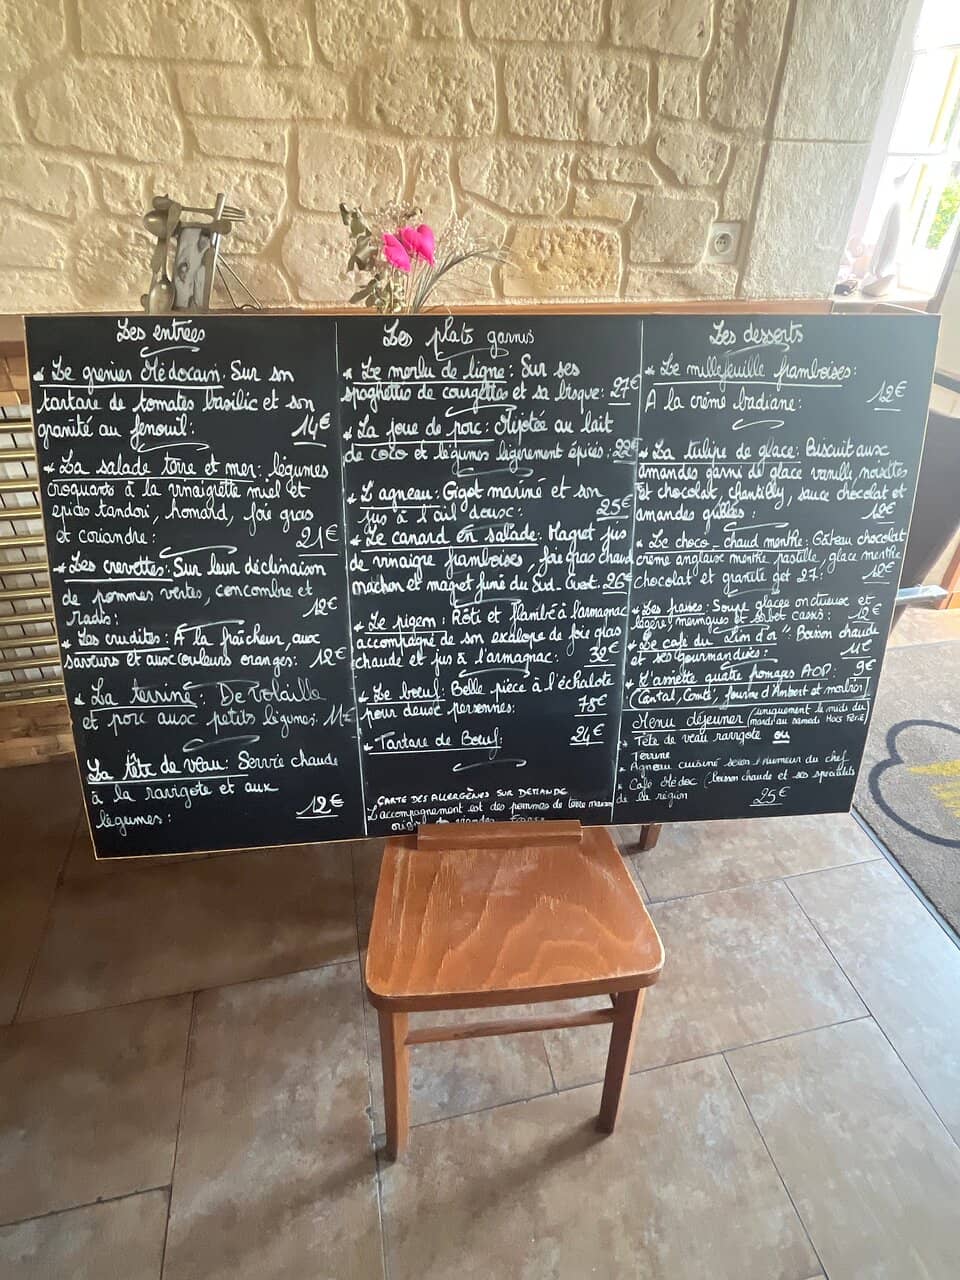 Les entrées
* Le grenier Médocain: Sur son
tartare de tomates basilic et son
granité au fenouil: 14€
* La salade terre et mer: légumes
croquants à la vinaigrette miel et
epices tandori, homard, foie gras
et coriandre: 21€
* Les crevettes: Sur leur déclinaison
de pommes vertes, concombre et
radis: 12€
* Les crudités: À la fraîcheur, aux
saveurs et aux couleurs oranges: 12€
* La terrine: De Volaille
et porc aux petits légumes: 11€
La tête de veau: Servie chaude
à la ravigote et aux
légumes: 12€
Les plats garnis
* Le merlu de ligne: Sur ses
spaghettis de courgettes et sa bisque: 27€
* La joue de porc: Mijotée au lait
de coco et légumes légèrement épicés: 22€
* L'agneau: Gigot mariné et son
jus à l'ail doux: 25€
* Le canard en salade: Magret jus
de vinaigre framboises, foie gras chaud
machon et magret fumé du Sud-Ouest. 26€
* Le pigeon: Rôti et flambé à l'armagnac
accompagné de son escalope de foie gras
chaude et jus à l'armagnac: 38€
* Le bœuf: Belle pièce à l'échalote
pour deux personnes: 78€
* Tartare de Bœuf: 24€
CARTE DES ALLERGÈNES SUR DEMANDE
L'accompagnement est des pommes de terre maison
Les desserts
* Le millefeuille framboises:
À la crème badiane: 12€
* La tulipe de glace: Biscuit aux
amandes garni de glace vanille, noisettes
et chocolat, chantilly, sauce chocolat et
amandes grillées: 12€
* Le choco-chaud menthe: Gâteau chocolat
crème anglaise menthe pastille, glace menthe
chocolat et granité get 27: 12€
* Les fraises: Soupe glacée onctueuse et
légère, meringues et sorbet cassis: 12€
* Le café du "Lion d'or": Boisson chaude
et ses gourmandises: 11€
* L'assiette quatre fromages AOP: 9€
(Cantal, Comté, fourme d'Ambert et
Menu déjeuner (uniquement le midi du
mardi au samedi Hors Férié)
* Tête de veau ravigote ou
Terrine
* Agneau cuisiné selon l'humeur du chef
* Café Médoc (Boisson chaude et ses spécialités
de la région 25€